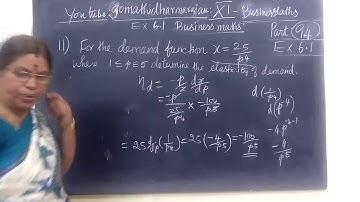 Youtube: Gomathidharmarajan XI - Business Maths
Ex 6.1 Business maths
Part (94)
Ex 6.1
11) For the demand function x = 25/p⁴
where 1 ≤ p ≤ 5 determine the elasticity of demand.
ηd = -p/x dx/dp
= -p / (25/p⁴) × -100/p⁵
d(1/p⁴)
d(p⁻⁴)
-4p⁻⁴⁻¹
-4/p⁵
= 25 d/dp (1/p⁴) = 25(-4/p⁵) = -100/p⁵